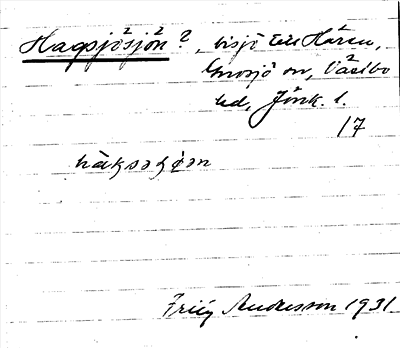 Hagsjösjön?, bisjö till Hären,
Gnosjö sn, Västbo
hd, Jönk. l.
17
Fritz Andersson 1931